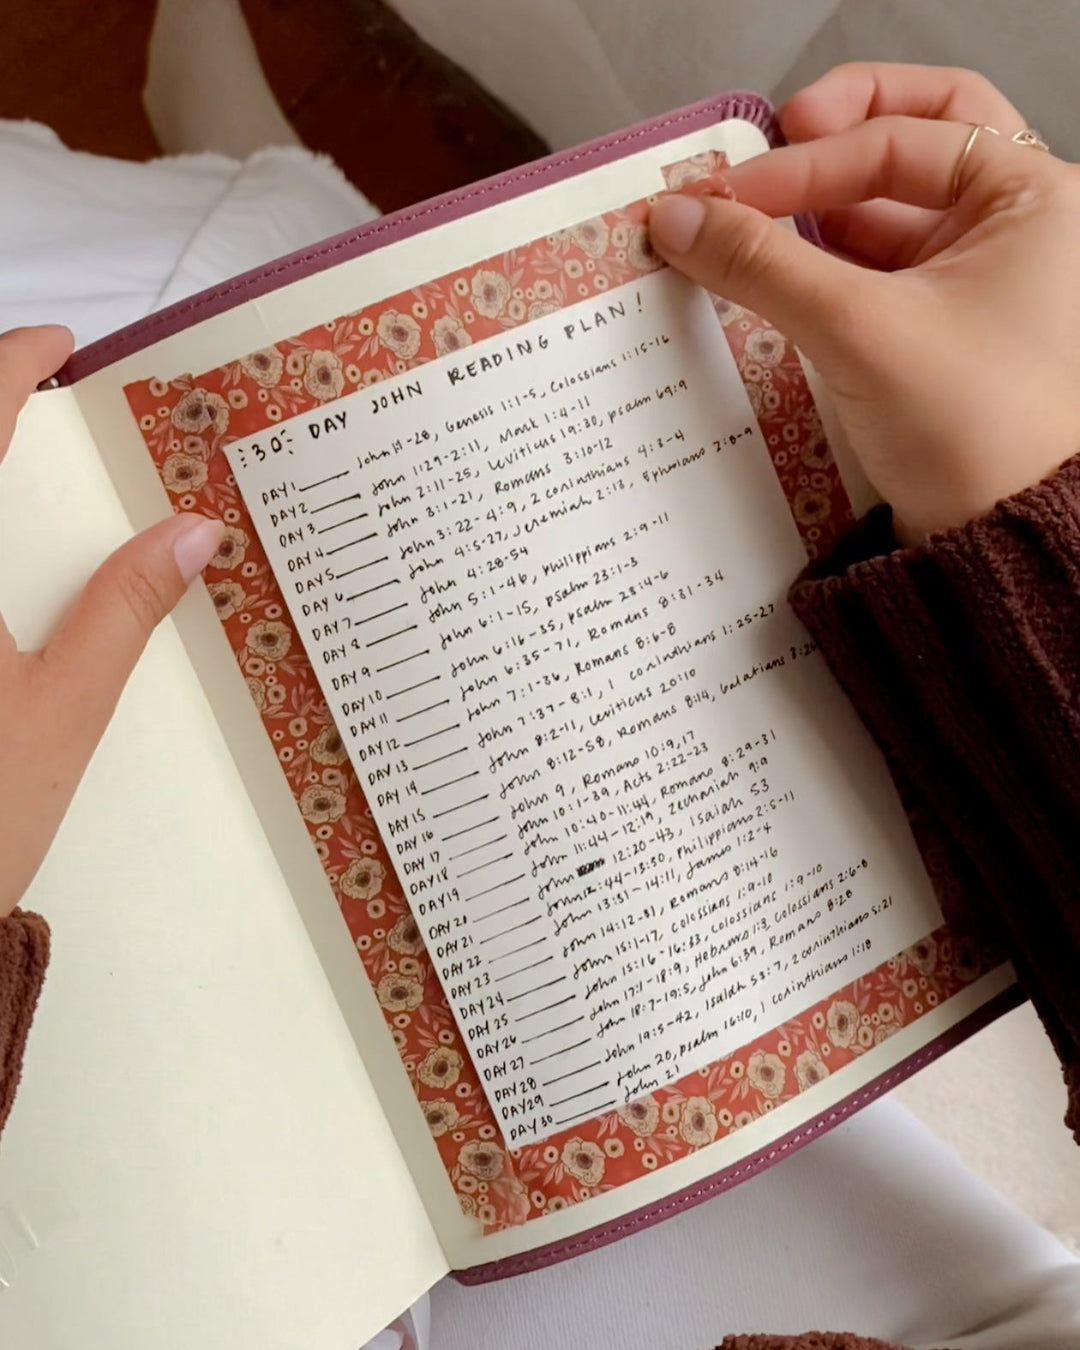 30 DAY JOHN READING PLAN!
DAY 1 John 1:1-28, Genesis 1:1-5, Colossians 1:15-16
DAY 2 John 1:29-2:11, Mark 1:4-11
DAY 3 John 2:11-25, Leviticus 19:30, psalm 69:9
DAY 4 John 3:1-21, Romans 3:10-12
DAY 5 John 3:22-4:9, 2 corinthians 4:3-4
DAY 6 John 4:5-27, Jeremiah 2:13, Ephesians 2:8-9
DAY 7 John 4:28-54
DAY 8 John 5:1-46, philippians 2:9-11
DAY 9 John 6:1-15, psalm 23:1-3
DAY 10 John 6:16-35, psalm 23:4-6
DAY 11 John 6:35-71, Romans 8:31-34
DAY 12 John 7:1-36, Romans 8:6-8
DAY 13 John 7:37-8:1, 1 corinthians 1:25-27
DAY 14 John 8:2-11, Leviticus 20:10
DAY 15 John 8:12-58, Romans 8:14, Galatians 3:26
DAY 16 John 9, Romans 10:9,17
DAY 17 John 10:1-39, Acts 2:22-23
DAY 18 John 10:40-11:44, Romans 8:29-31
DAY 19 John 11:44-12:19, Zechariah 9:9
DAY 20 John 12:20-43, Isaiah 53
DAY 21 John 12:44-13:30, Philippians 2:5-11
DAY 22 John 13:31-14:11, James 1:2-4
DAY 23 John 14:12-31, Romans 8:14-16
DAY 24 John 15:1-17, Colossians 1:9-10
DAY 25 John 15:16-16:33, Colossians 1:9-10
DAY 26 John 17:1-18:9, Hebrews 1:3, Colossians 2:6-8
DAY 27 John 18:7-19:5, John 6:39, Romans 8:28
DAY 28 John 19:5-42, Isaiah 53:7, 2 corinthians 5:21
DAY 29 John 20, psalm 16:10, 1 corinthians 1:18
DAY 30 John 21